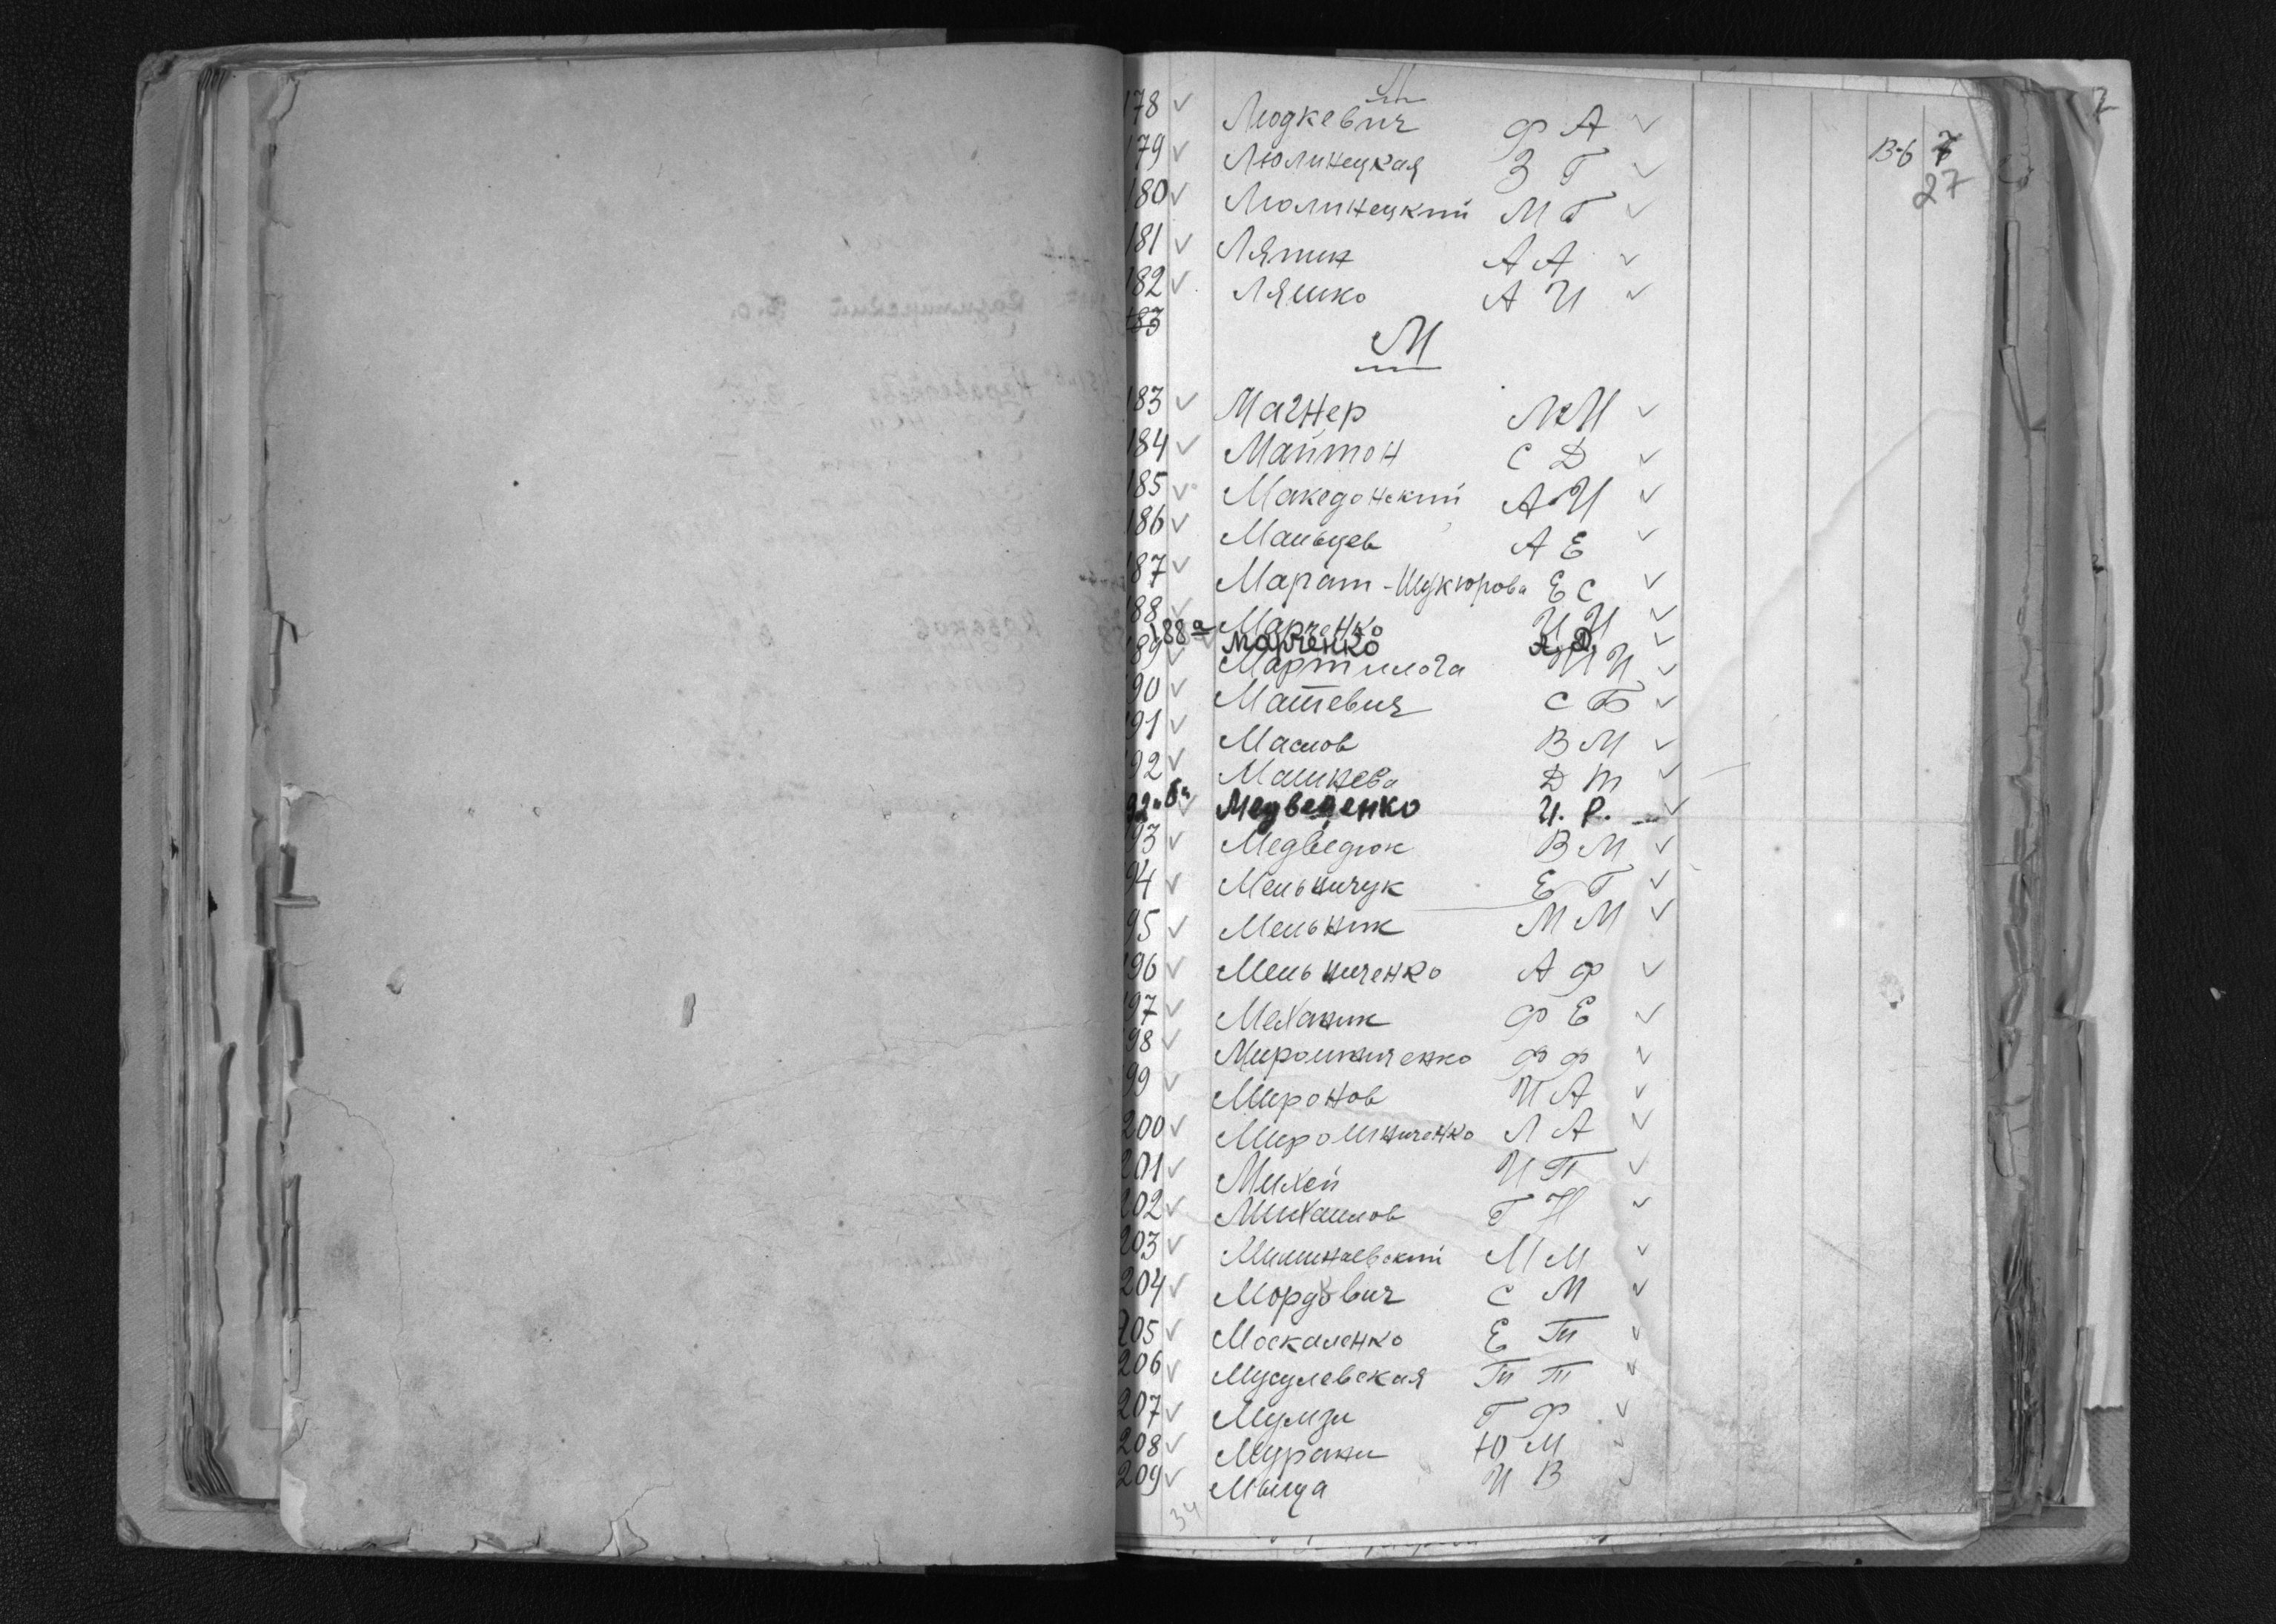 В-6 7
27
178 Людкевич Ф А
179 Люлинецкая З Г
180 Люлинецкий М Г
181 Ляпин А А
182 Ляшко А И
183
М
183 Магнер М И
184 Майтон С Д
185 Македонский А И
186 Мальцев А Е
187 Марат-Шукюрова Е С
188 Марченко И И
188а Марченко А. Д.
189 Мартилога И И
190 Матевич С Б
191 Маслов В М
192 Машнева Д Т
192 "б" Медведенко И. Р.
193 Медведюк В М
194 Мельничук Е Г
195 Мельник М М
196 Мельниченко А Ф
197 Механик Ф Е
198 Мирошниченко Ф Ф
199 Миронов И А
200 Мирошниченко Л А
201 Михей И П
202 Михайлов Г Н
203 Милинаевский М М
204 Мордович С М
205 Москаленко Е П
206 Мусулевская П П
207 Мумзи Г Ф
208 Мурани Ю М
209 Мыца И В
34